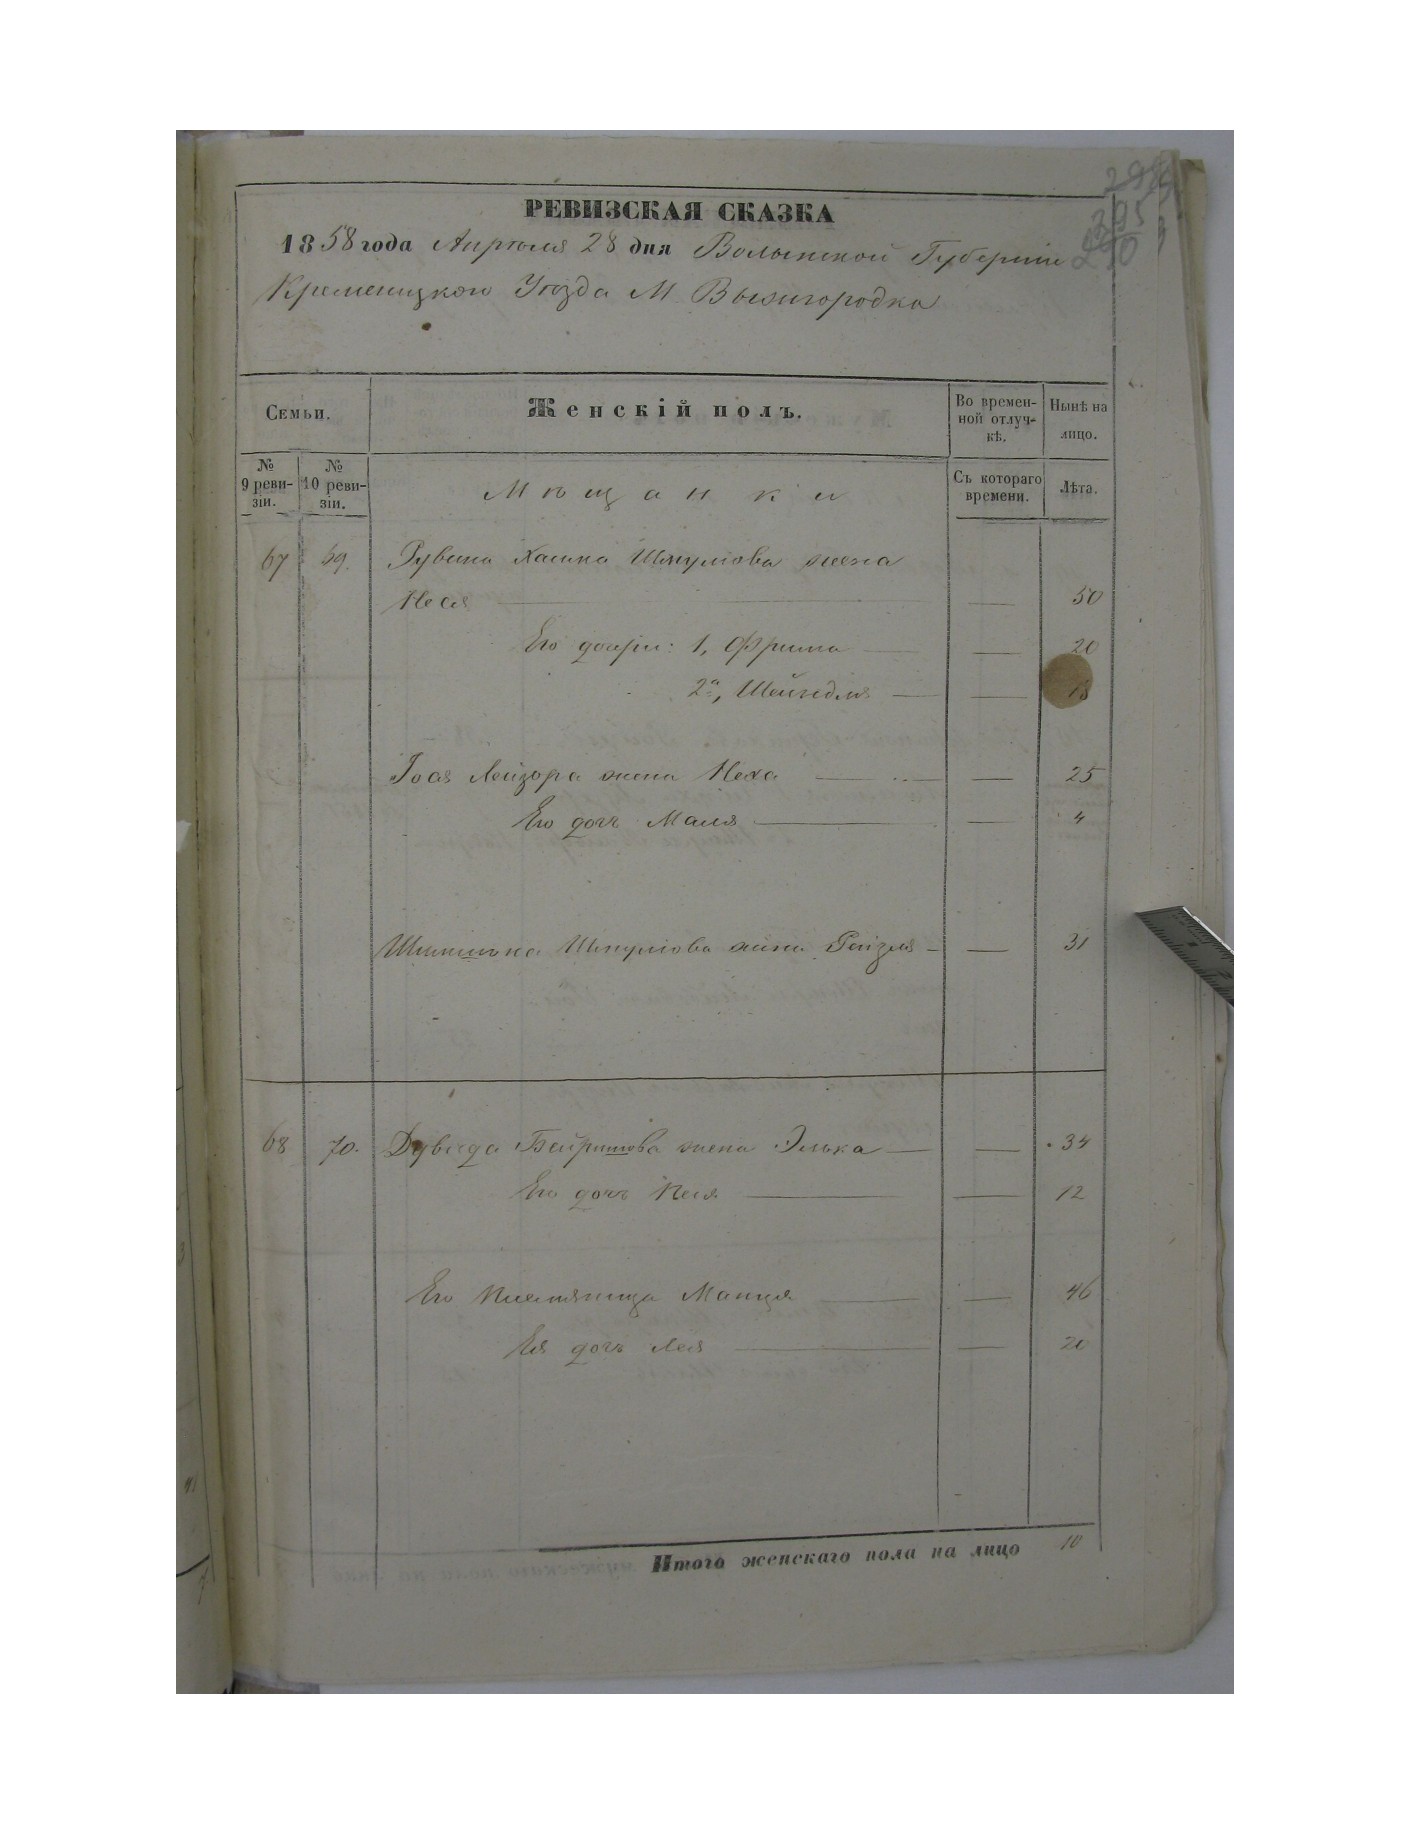 РЕВИЗСКАЯ СКАЗКА
1858 года Апрѣля 28 дня Волынской Губерніи
Кременецкого Уѣзда М Вышгородка
395
Семьи.
Женскій полъ.
Во времен-
ной отлуч-
кѣ.
Нынѣ на
лицо.
№
9 реви-
зіи.
№
10 реви-
зіи.
Мѣщанки
Съ котораго
времени.
Лѣта.
67 69. Рувина Хаима Шмулiова жена
Неся — — 50
Его дочери: 1, Фрима — — 20
2я, Шейндля — — 18
Iося Лейзора жена Неха — — 25
Его дочь Маля — — 4
Шмулiова жена Рейзля — — 31
68 70. Дувида жена Элька — — 34
Его дочь Песя — — 12
Его племяница Манця — — 46
Ея дочь Лея — — 20
Итого женскаго пола на лицо 10